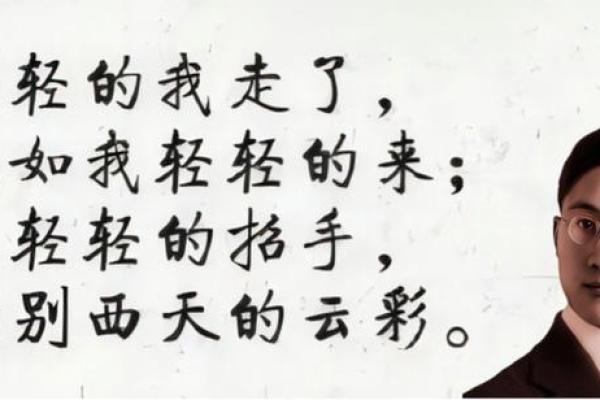 轻的我走了，
如我轻轻的来；
轻轻的招手，
别西天的云彩。